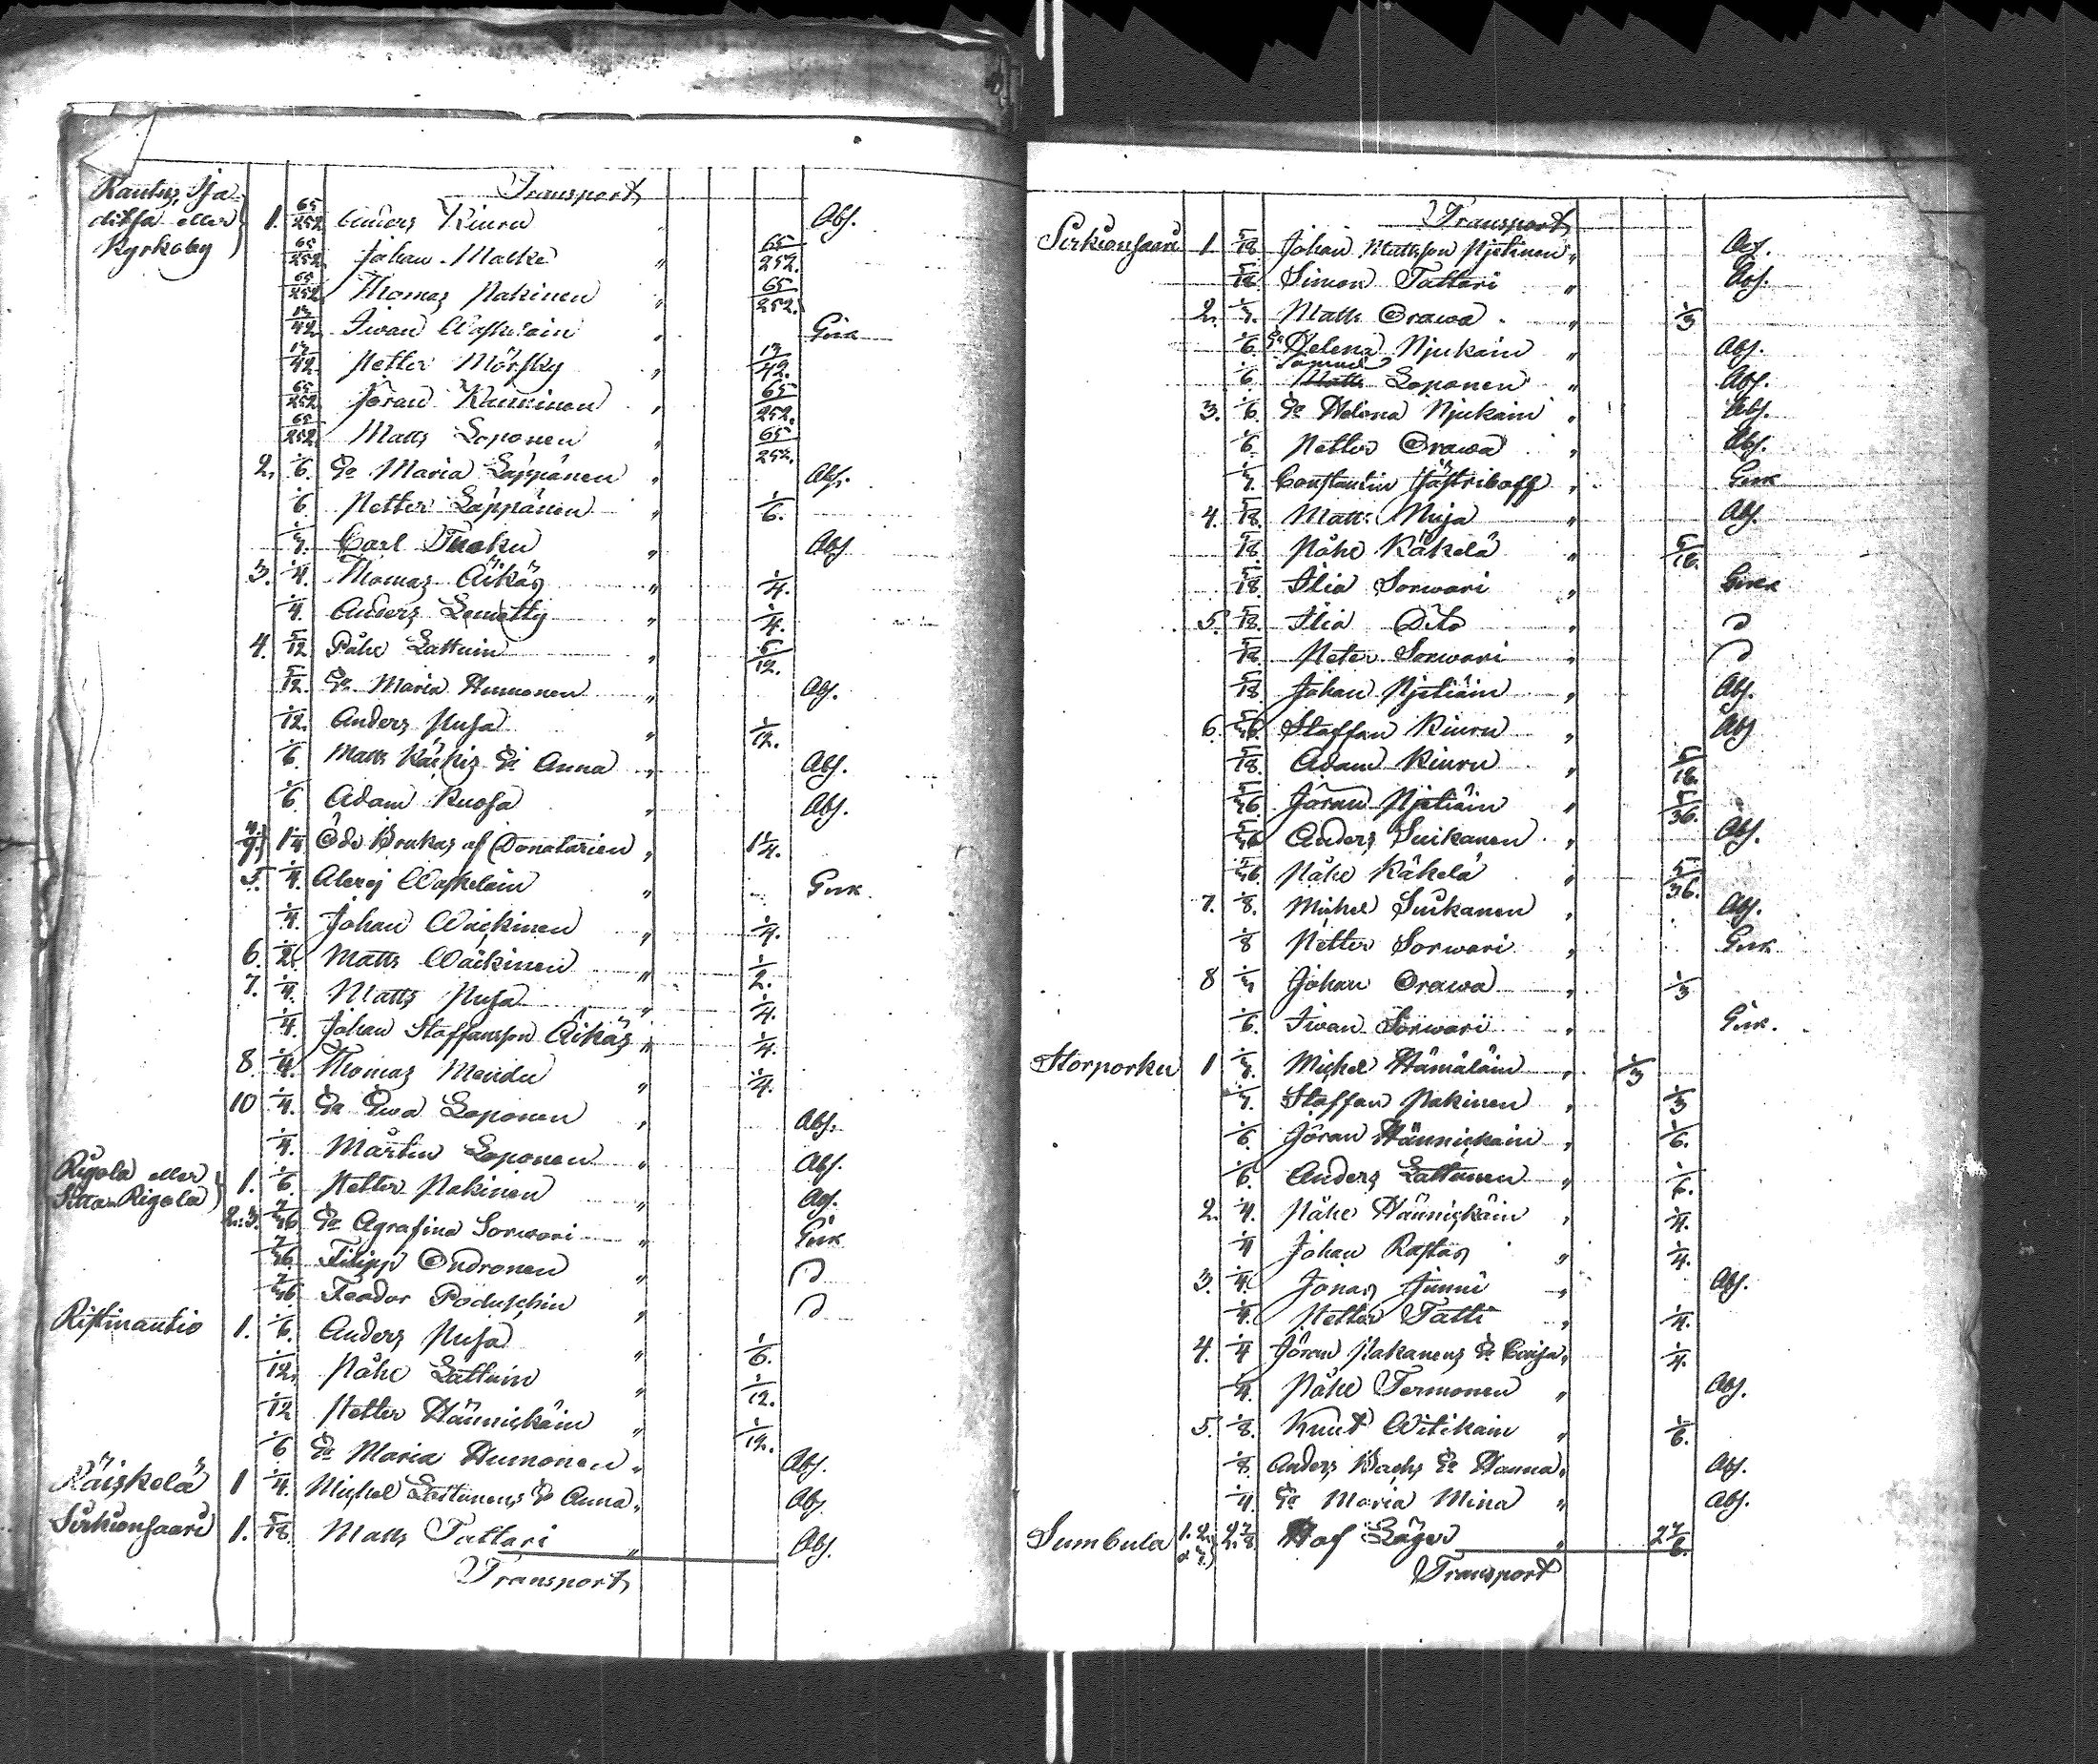 Transport
Rautus, Sja-
ditsa eller
Kyrkoby
1. 65/252 Anders Kiuru " Abs.
65/252. Johan Malke " 65/252.
65/252 Thomas Pakinen " 65/252.
13/42. Iwan Waskelain " Grek
13/42. Petter Mörsky " 13/42.
65/252 Jöran Kanninen " 65/252.
65/252 Matts Loponen " 65/252.
2. 1/6. Ea Maria Läppänen " Abs.
1/6 Petter Läppänen " 1/6.
1/3. Carl Tucku " Abs
3. 1/4. Thomas Äikäs " 1/4.
1/4. Anders Lemetty " 1/4.
4. 5/12 Påhl Lattuin " 5/12.
5/12. Ea Maria Humonen " Abs.
1/12. Anders Pusa " 1/12.
1/6. Matts Käkis Ea Anna " Abs.
1/6 Adam Kuosa " Abs.
1 1/4 Öde Brukas af Donatarien " 1 1/4.
5. 1/4. Alexej Waskelain " Grek
1/4. Johan Wäikinen " 1/4.
6. 1/2. Matts Wäikinen " 1/2.
7. 1/4. Matts Pusa " 1/4.
1/4. Johan Staffansson Äikäs " 1/4.
8. 1/4. Thomas Mendu " 1/4.
10 1/4. Ea Ewa Loponen " Abs.
1/4. Mårten Loponen " Abs.
Rigola eller
Sitta-Rigola
1. 1/6. Petter Pakinen " Abs.
2.3. 7/36 Ea Agrafina Sorwari " Grek
7/36 Filipp Ondronen " D
7/36 Feodor Poduschin " D
Ristinautio 1. 1/6. Anders Pusa " 1/6.
1/12. Påhl Lattuin " 1/12.
1/12 Petter Hännickäin " 1/12.
1/6 Ea Maria Humonen " Abs.
Räiskelä 1 1/4. Michel Lattunens Ea Anna " Abs.
Sirkiensaari 1. 5/18. Matts Tattari " Abs.
Transport
Transport
Sirkiensaari 1 5/18 Johan Mattsson Pjetinen " Abs.
5/18. Simon Tattari " Abs.
2. 1/3. Matts Orawa " 1/3
1/6. Ea Helena Njukain " Abs.
Samuel
1/6. Matts Loponen " Abs.
3. 1/6. Ea Helena Njukain " Abs.
1/6. Petter Orawa " Abs.
1/3. Constantin Jästreboff " Grek
4. 5/18. Matts Nuija " Abs.
5/18. Påhl Käkelä " 5/18.
5/18. Ilia Sorwari " Grek
5. 5/18. Ilia Dito " D
5/18. Peter Sorwari " D
5/18 Johan Pjetiäin " Abs.
6. 5/36. Staffan Kiuru " Abs
5/18. Adam Kiuru " 5/18.
5/36. Jöran Pjetiäin " 5/36.
5/36 Anders Suikanen " Abs.
5/36. Påhl Käkelä " 5/36.
7. 1/8. Michel Suikanen " Abs.
1/8 Petter Sorwari " Grek
8 1/3 Johan Orawa " 1/3
1/6. Iwan Sorwari " Grek.
Storporku 1 1/3. Michel Hämäläin " 1/3
1/3. Staffan Pakinen " 1/3
1/6. Jöran Hännickäin " 1/6.
1/6. Anders Lattunen " 1/6.
2. 1/4. Påhl Hännickäin " 1/4.
1/4 Johan Rastas " 1/4.
3. 1/4. Jonas Junni " Abs.
1/4. Petter Tatti " 1/4.
4. 1/4 Jöran Pakanens Ea Caisa " 1/4.
1/4. Påhl Termonen " Abs.
5. 1/8. Knut Witikain " 1/8.
1/8. Anders Ea Hanna " Abs.
1/4. Ea Maria Mina " Abs.
Sumbula 1.2. & 3. 2 7/8 Hof Läger " 2 7/8.
Transport